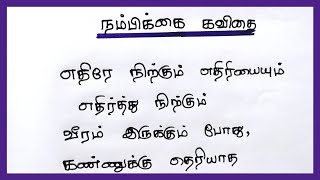 நம்பிக்கை கவிதை
எதிரே நிற்கும் எதிரியையும்
எதிர்த்து நிற்கும்
வீரம் இருக்கும் போது,
கண்ணுக்கு தெரியாத